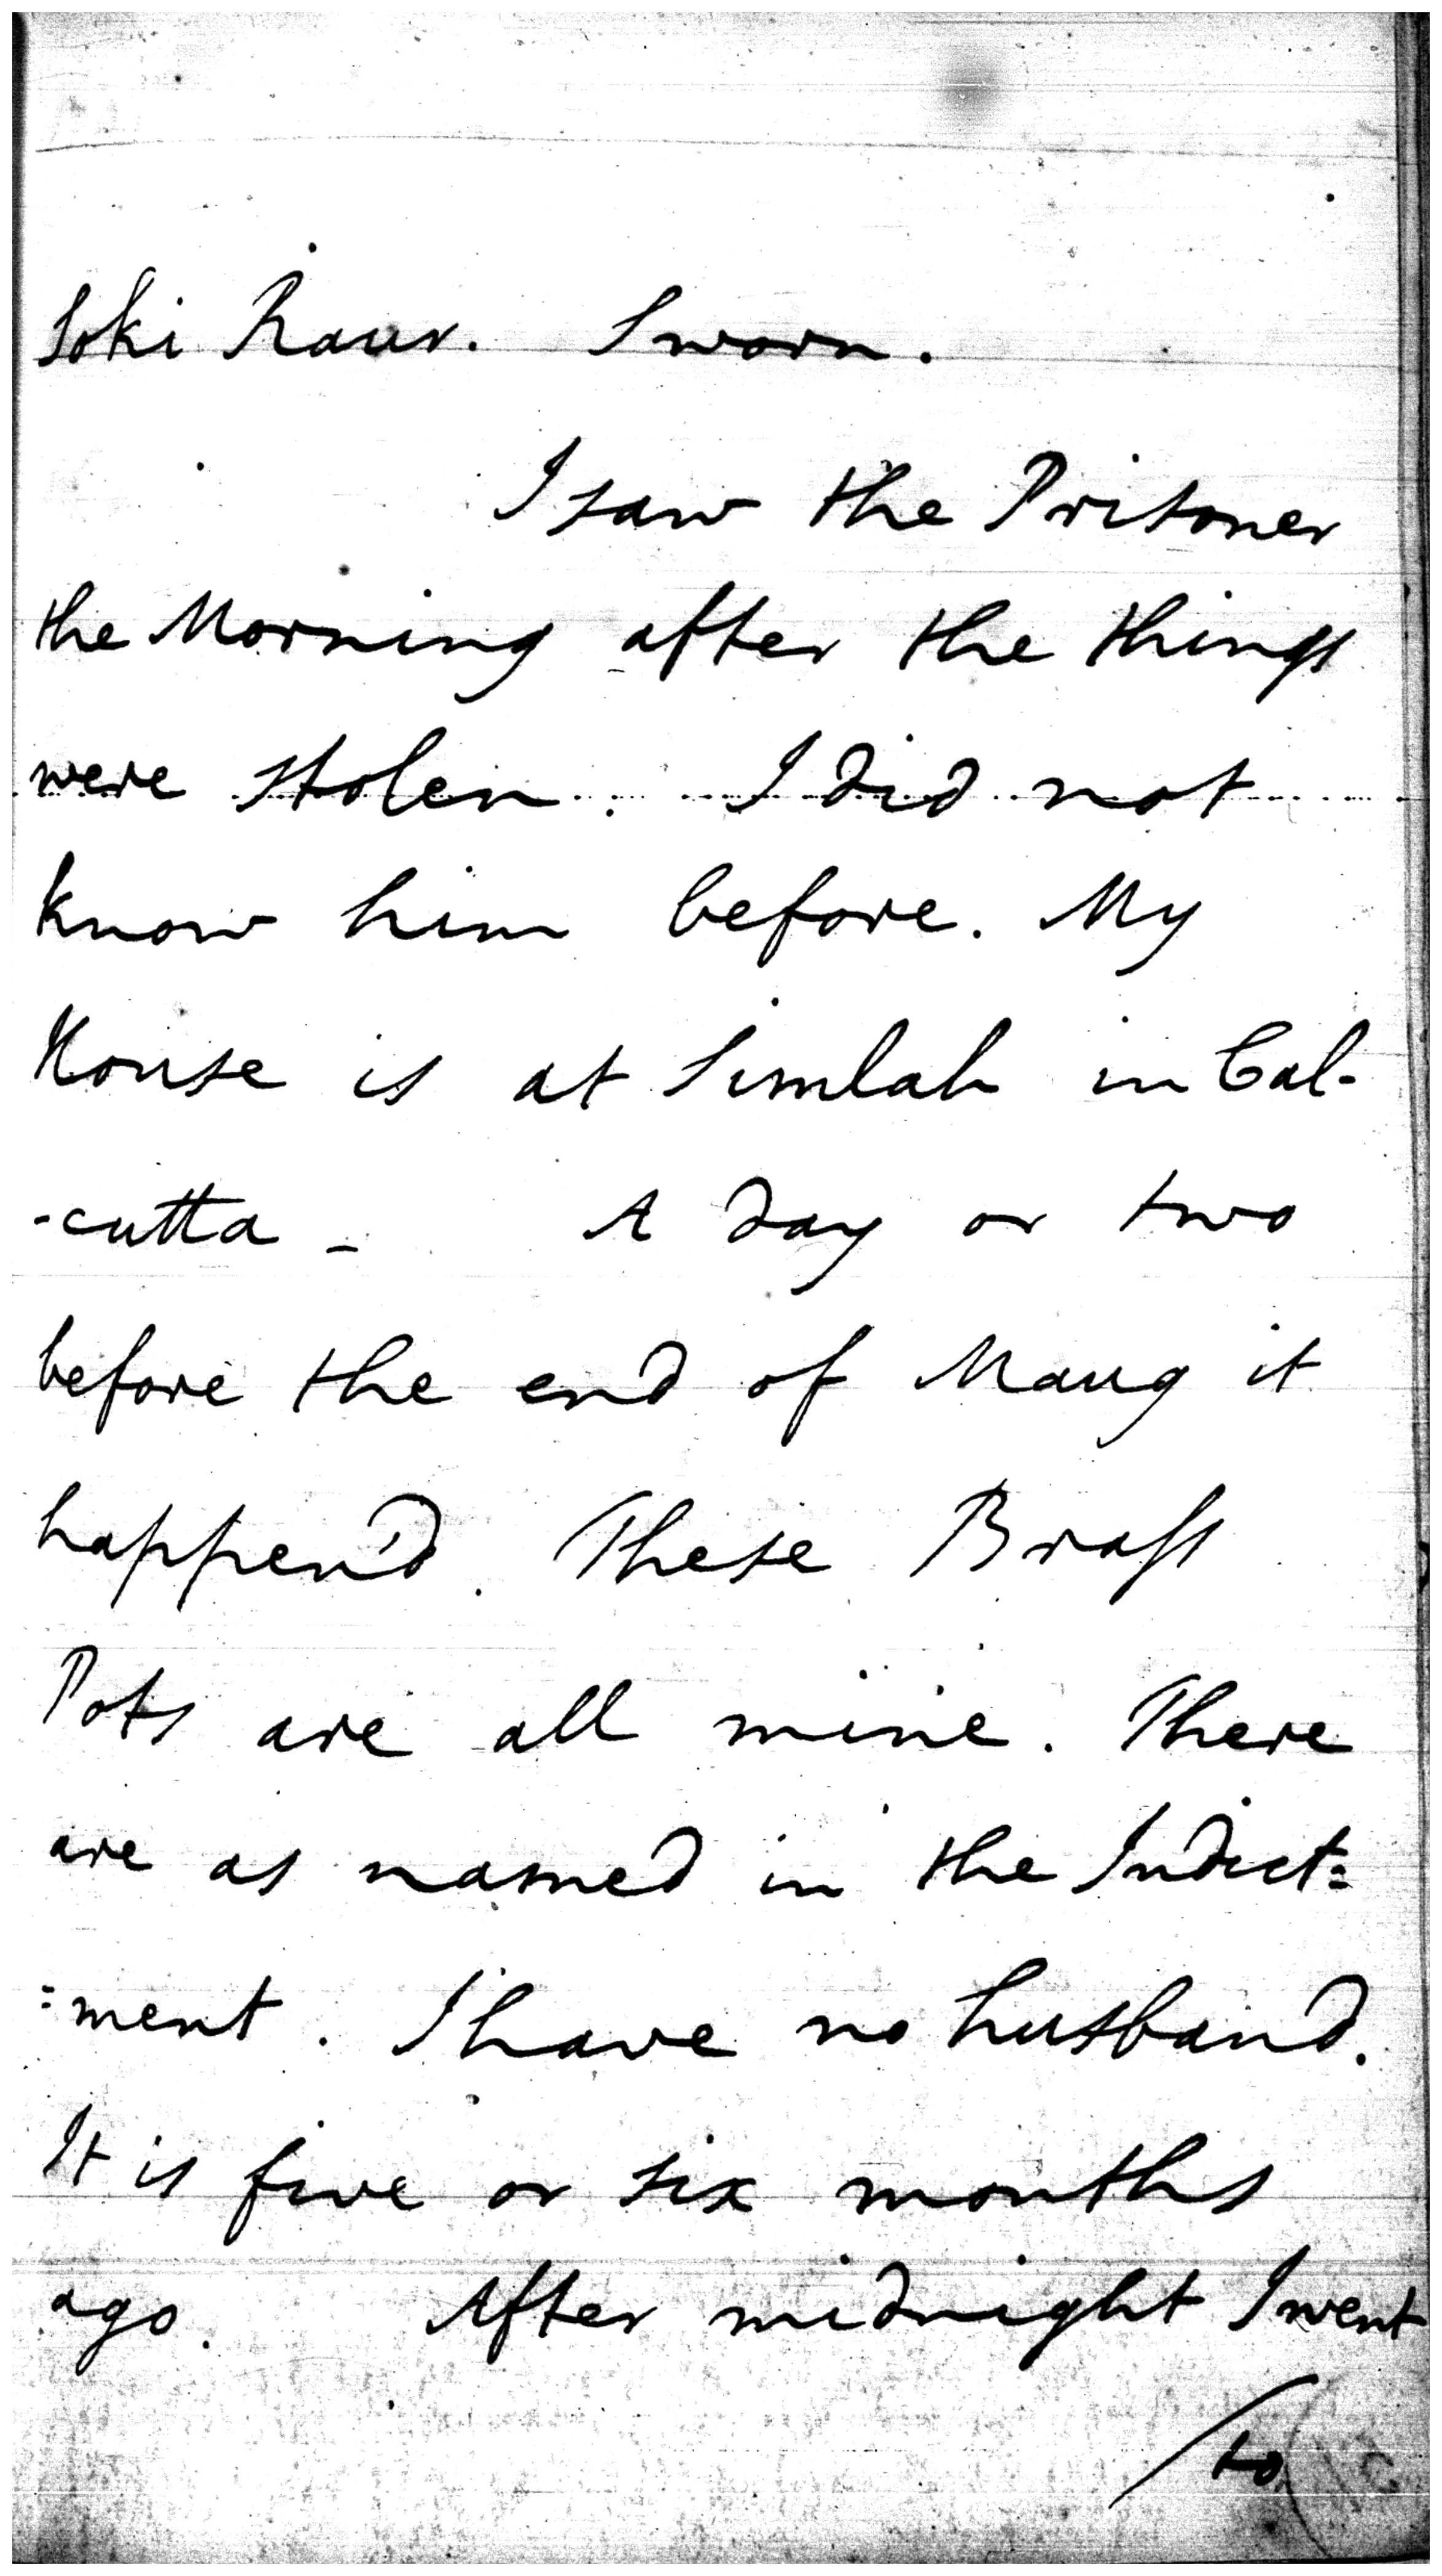 Soki Raur. Sworn.
I saw the Prisoner
the Morning after the things
were stolen. I did not
know him before. My
House is at Simlah in Cal-
-cutta _ A day or two
before the end of Maug it
happen'd. These Brass
Pots are all mine. There
are as named in the Indict=
=ment. I have no husband.
It is five or six months
ago. After midnight I went
/to